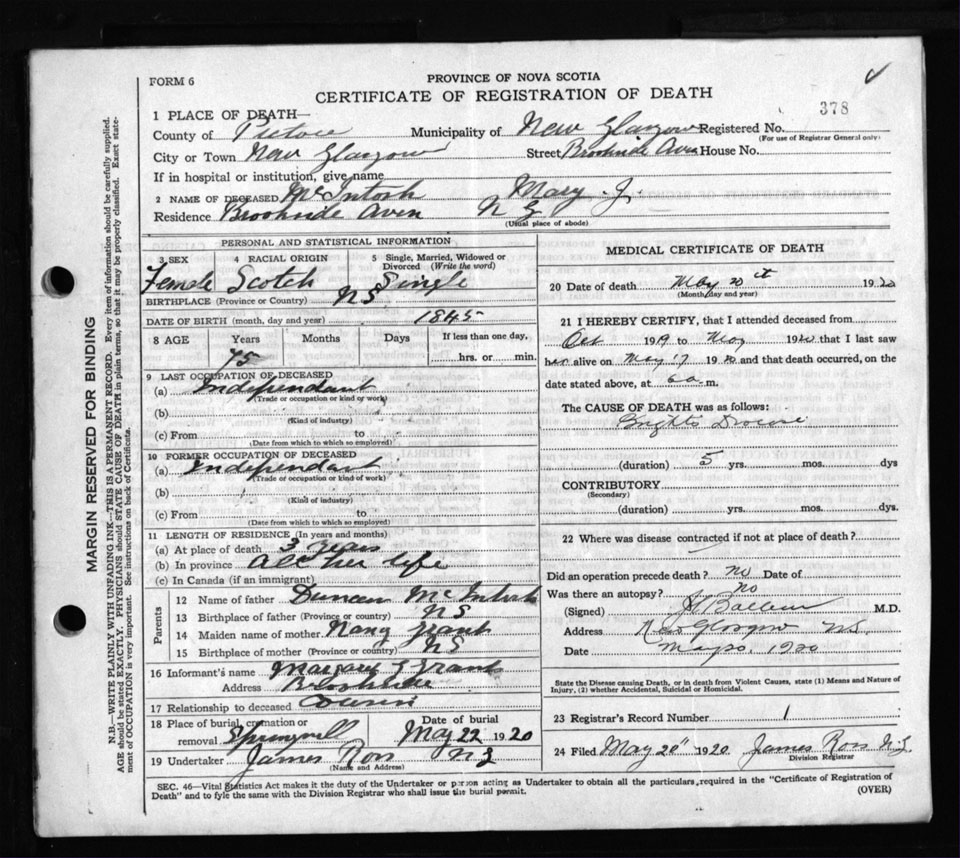 FORM 6
PROVINCE OF NOVA SCOTIA
CERTIFICATE OF REGISTRATION OF DEATH
378
1 PLACE OF DEATH—
County of Pictou Municipality of New Glasgow Registered No.
(For use of Registrar General only)
City or Town New Glasgow Street Brookside Aven House No.
If in hospital or institution, give name
2 NAME OF DECEASED McIntosh Mary J.
Residence Brookside Aven N G
(Usual place of abode)
PERSONAL AND STATISTICAL INFORMATION
3 SEX 4 RACIAL ORIGIN 5 Single, Married, Widowed or Divorced (Write the word)
Female Scotch Single
BIRTHPLACE (Province or Country) NS
DATE OF BIRTH (month, day and year) 1845
8 AGE Years Months Days If less than one day,
75 hrs. or min.
9 LAST OCCUPATION OF DECEASED
(a) Independant
(Trade or occupation or kind of work)
(b)
(Kind of industry)
(c) From to
(Date from which to which so employed)
10 FORMER OCCUPATION OF DECEASED
(a) Independant
(Trade or occupation or kind of work)
(b)
(Kind of industry)
(c) From to
(Date from which to which so employed)
11 LENGTH OF RESIDENCE (In years and months)
(a) At place of death 3 years
(b) In province All her life
(c) In Canada (if an immigrant)
Parents
12 Name of father Duncan McIntosh
13 Birthplace of father (Province or country) NS
14 Maiden name of mother Nancy Grant
15 Birthplace of mother (Province or country) NS
16 Informant's name Margary Grant
Address Brookside
17 Relationship to deceased Cousin
18 Place of burial, cremation or removal Springvill Date of burial May 22 1920
19 Undertaker James Ross N G
(Name and Address)
MEDICAL CERTIFICATE OF DEATH
20 Date of death May 20th 1920
(Month, day and year)
21 I HEREBY CERTIFY, that I attended deceased from
Oct 1919 to May 1920 that I last saw
her alive on May 17 1920 and that death occurred, on the
date stated above, at 6 a. m.
The CAUSE OF DEATH was as follows:
Brights Disease
(duration) 5 yrs. mos. dys
CONTRIBUTORY
(Secondary)
(duration) yrs. mos. dys.
22 Where was disease contracted if not at place of death?
Did an operation precede death? No Date of
Was there an autopsy? no
(Signed) M.D.
Address New Glasgow N.S.
Date May 20, 1920
State the Disease causing Death, or in death from Violent Causes, state (1) Means and Nature of Injury, (2) whether Accidental, Suicidal or Homicidal.
23 Registrar's Record Number 1
24 Filed May 20" 1920 James Ross N.G.
Division Registrar
SEC. 46—Vital Statistics Act makes it the duty of the Undertaker or person acting as Undertaker to obtain all the particulars, required in the "Certificate of Registration of
Death" and to fyle the same with the Division Registrar who shall issue the burial permit.
(OVER)
MARGIN RESERVED FOR BINDING
N.B.—WRITE PLAINLY WITH UNFADING INK—THIS IS A PERMANENT RECORD. Every item of information should be carefully supplied.
AGE should be stated EXACTLY. PHYSICIANS should STATE CAUSE OF DEATH in plain terms, so that it may be properly classified. Exact state-
ment of OCCUPATION is very important. See instructions on back of Certificate.